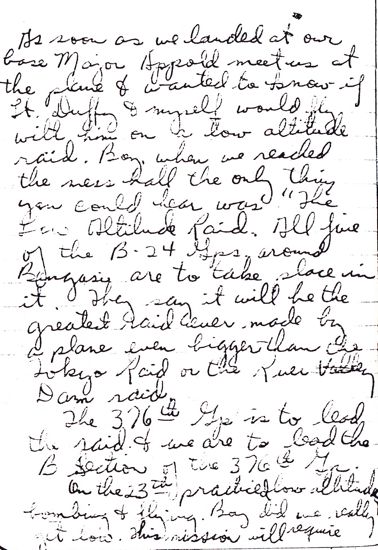 As soon as we landed at our
base Major Appold meet us at
the plane & wanted to know if
Lt. Duffy & myself would fly
with him on a low altitude
raid. Boy, when we reached
the mess hall the only thing
you could hear was "The
Low Altitude Raid. All five
of the B-24 Gps, around
Bengasy are to take place in
it. They say it will be the
greatest raid ever made by
a plane even bigger than the
Tokyo Raid or the Ruer Valley
Dam raid.
The 376th Gp is to lead
the raid & we are to lead the
B Section of the 376th Gp.
On the 23rd practiced low altitude
bombing & flying. Boy did we really
get low. This mission will require